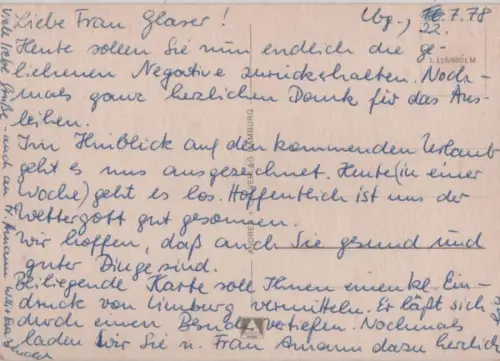 Liebe Frau Glaser! Lbg., 22.7.78
Heute sollen Sie nun endlich die ge-
liehenen Negative zurückerhalten. Noch-
mals ganz herzlichen Dank für das Aus-
leihen.
Im Hinblick auf den kommenden Urlaub
geht es uns ausgezeichnet. Heute (in einer
Woche) geht es los. Hoffentlich ist uns der
Wettergott gut gesonnen.
Wir hoffen, daß auch Sie gesund und
guter Dinge sind.
Beiliegende Karte soll Ihnen einen kl. Ein-
druck von Limburg vermitteln. Er läßt sich
durch einen Besuch vertiefen. Nochmals
laden wir Sie u. Frau Amann dazu herzlich
Viele liebe Grüße - auch an Fr. Amann
VERLAG LIMBURG